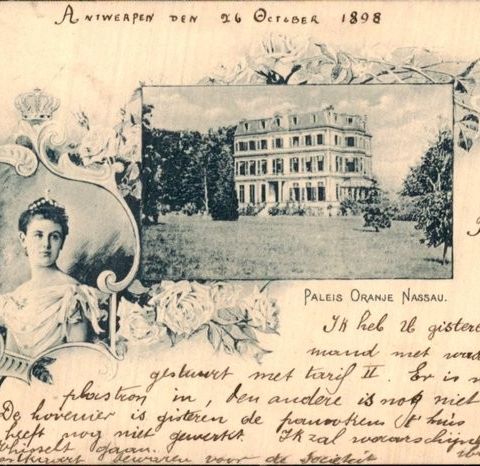 Antwerpen den 26 October 1898
Paleis Oranje Nassau.
Ik heb U gistere
mand met
gestuurt met tarif II. Er is
plastron in, den andere is nog niet
De hovenier is gisteren de t'huis
heeft nog niet gewerkt. Ik zal waarschijn
gaan.
bewaren voor de Societeit